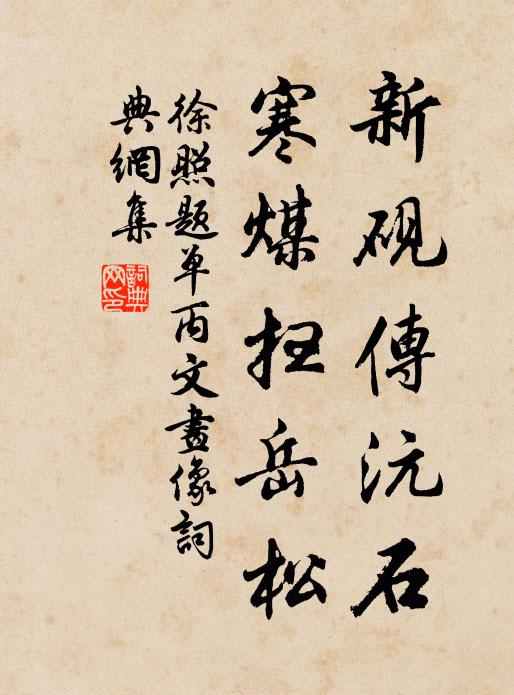 新硯傳沅石
寒煤扫岳松
徐照題单丙文畫像詞
典網集
詞典
网印